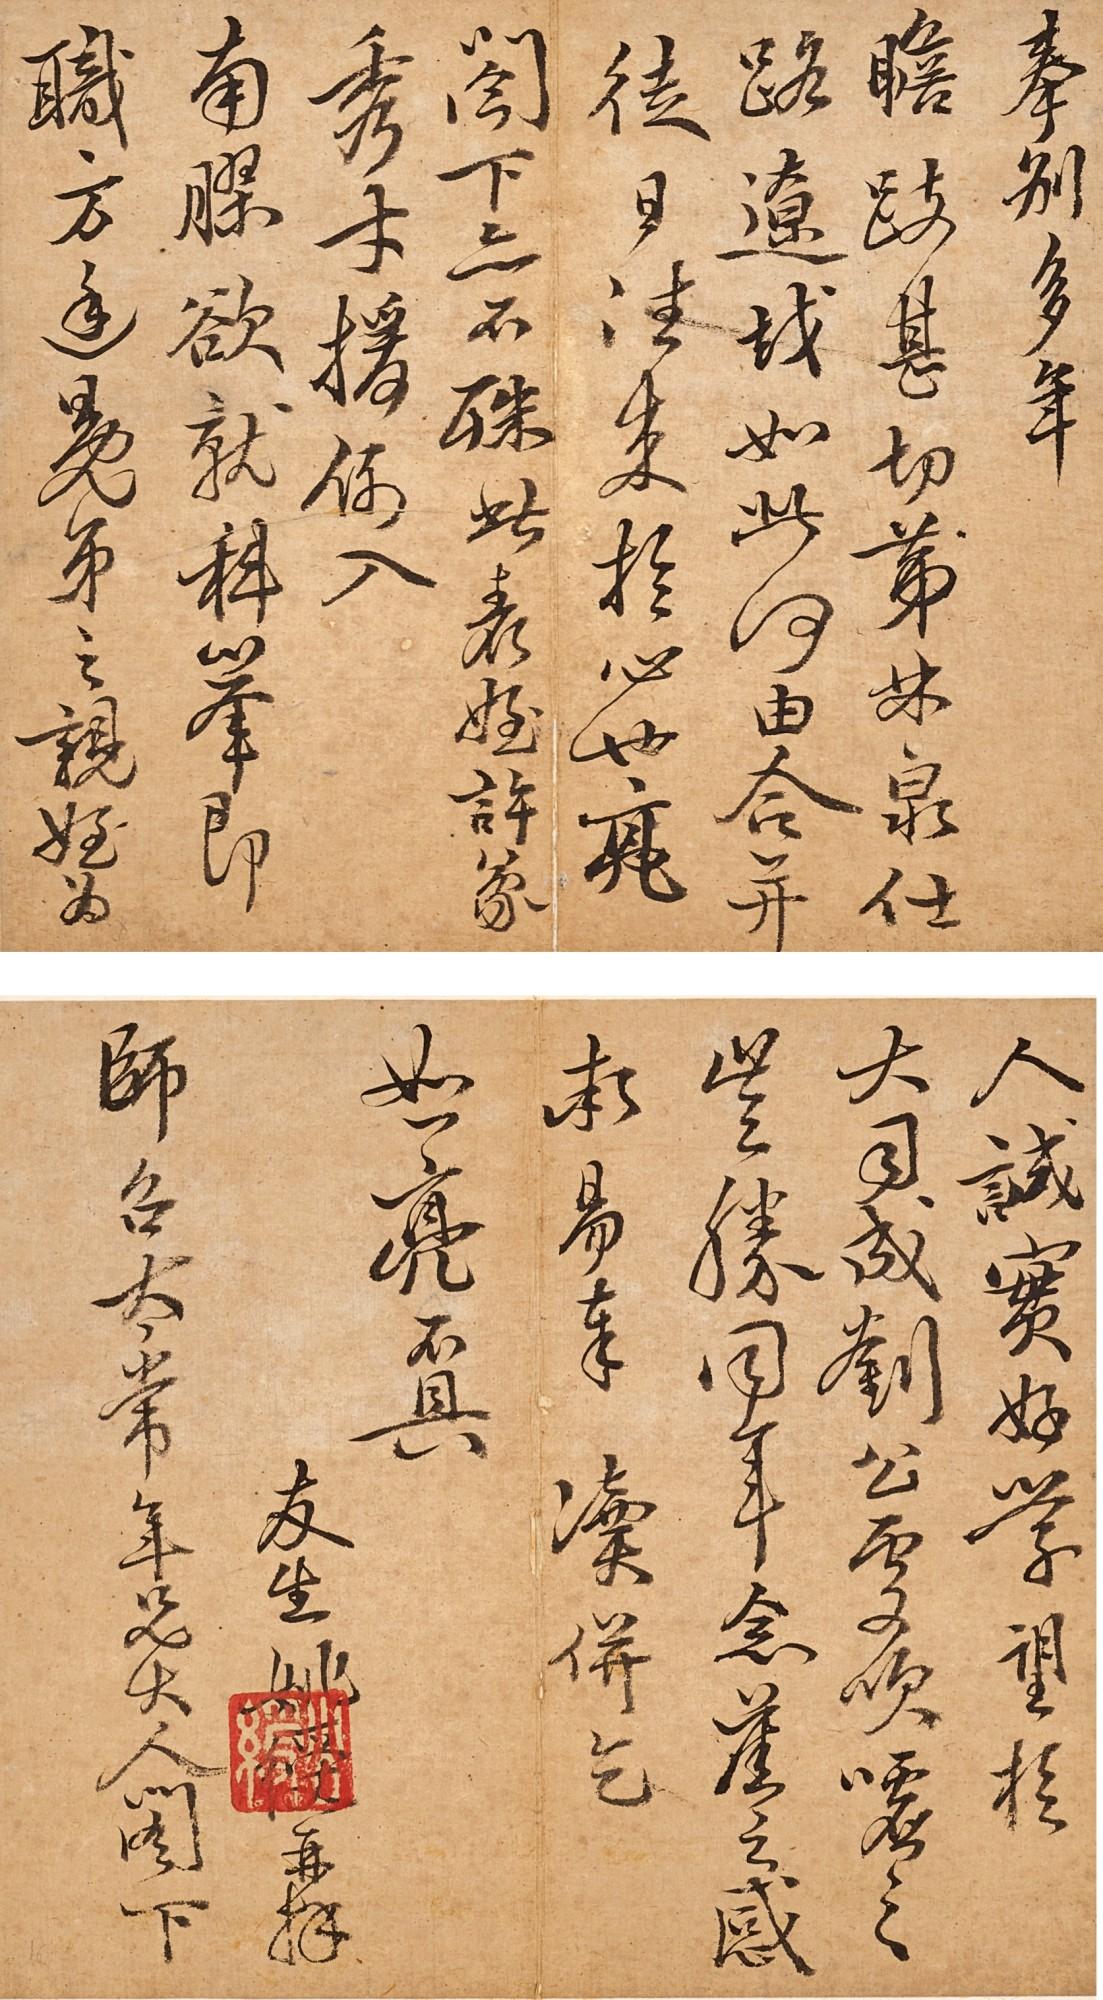 奉別多年
瞻跂甚切第林泉仕
路遼越如此何由合并
徒日往來於心也亮
閤下亦不殊此表姪許篆
秀才援例入
南膠欲就科舉即
職方廷冕弟之親姪為
人誠實好學望於
大司成劉公處吹噓之
豈勝同年念舊之感
輒易奉瀆併乞
如亮不具
友生姚綬再拜
師召太常年兄大人閣下